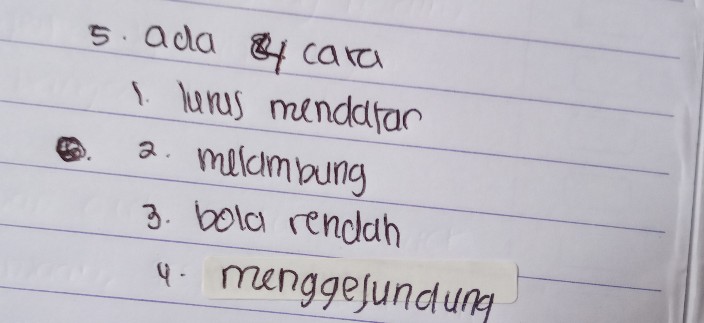 5. ada 4 cara
1. lurus mendatar
2. melambung
3. bola rendah
4. menggelundung